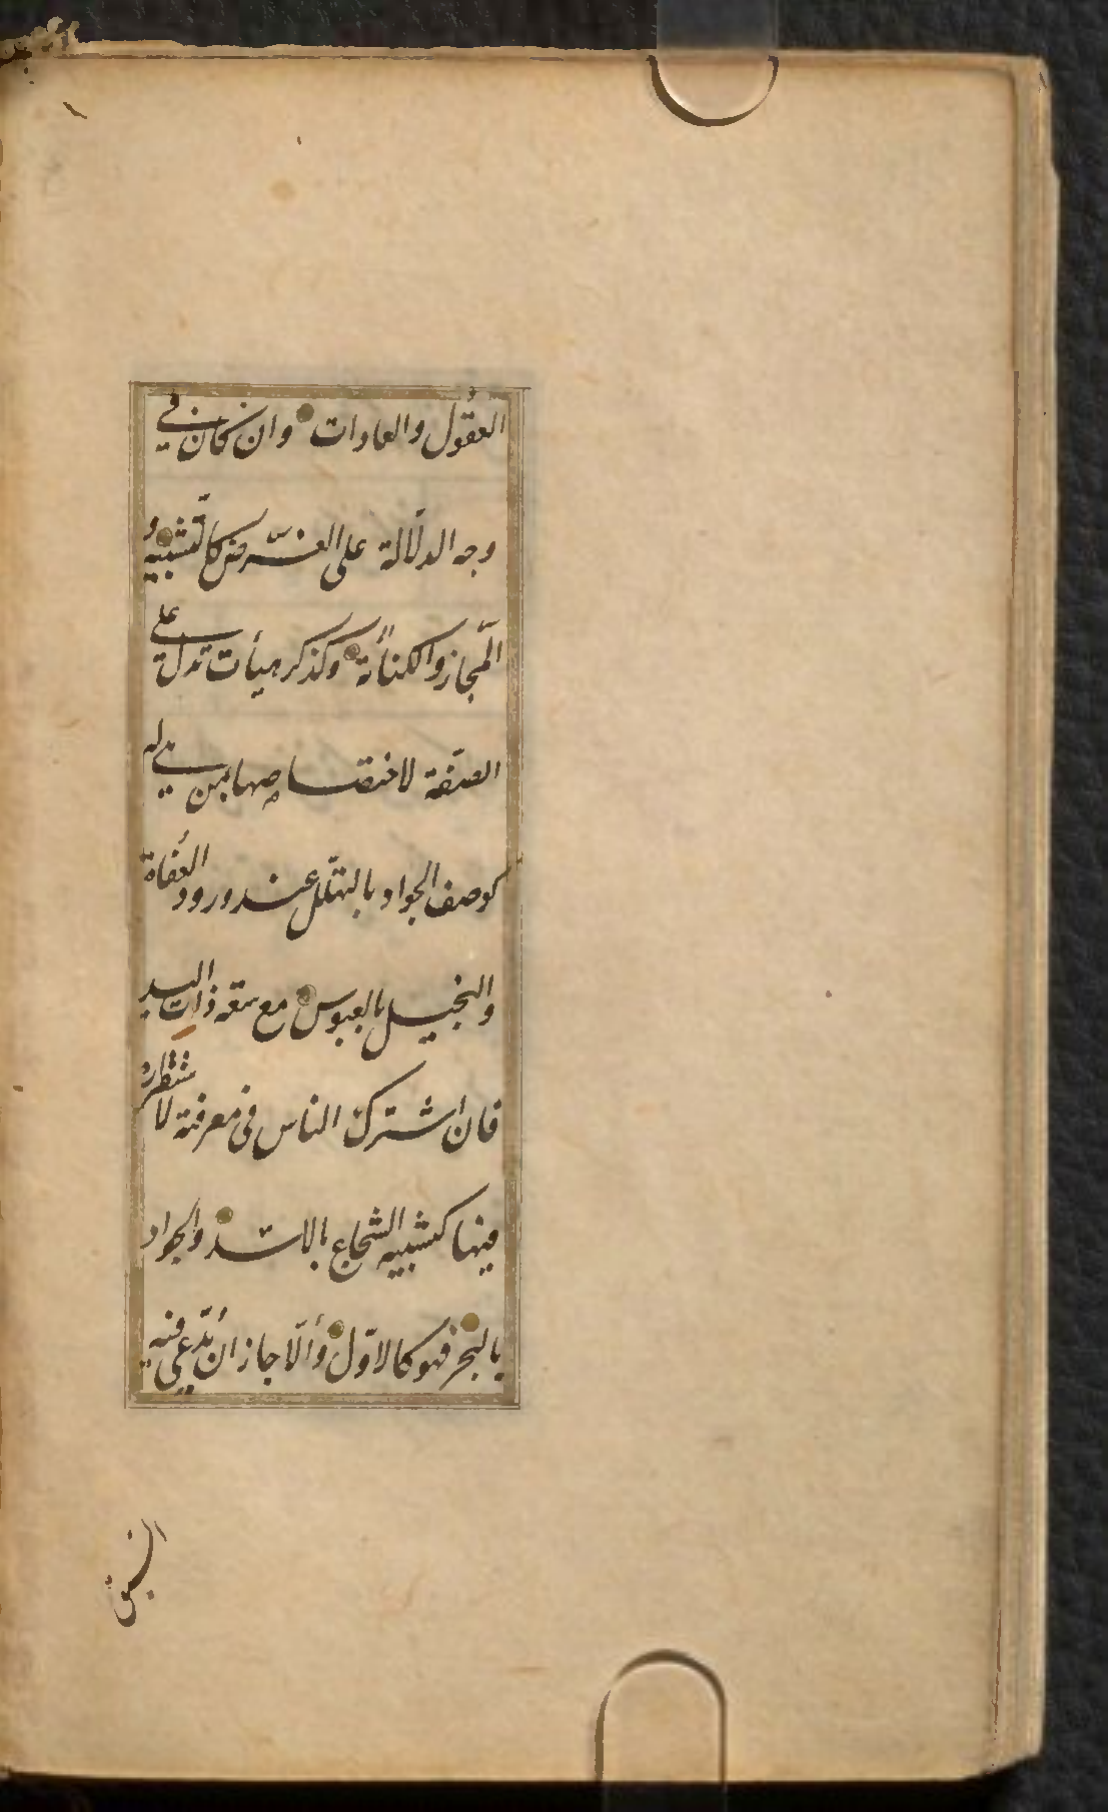 العقُول والعادات وان كان في
وجه الدلّالة على الغرض كالتّشبيه و
المجاز والكناية وكذكر هيأت تدل على
الصّفة لاختصاصها بمن هي له
كوصف الجواد بالتهلّل عند ورود العُفاة
والبخيل بالعبوس مع سعة ذات اليد
فان اشترك الناس فى معرفته لاستقراره
فيها كتشبيه الشجاع بالاسد والجواد
بالبحر فهو كالاوّل وألّا جاز ان يُدّعى فيه
السبق